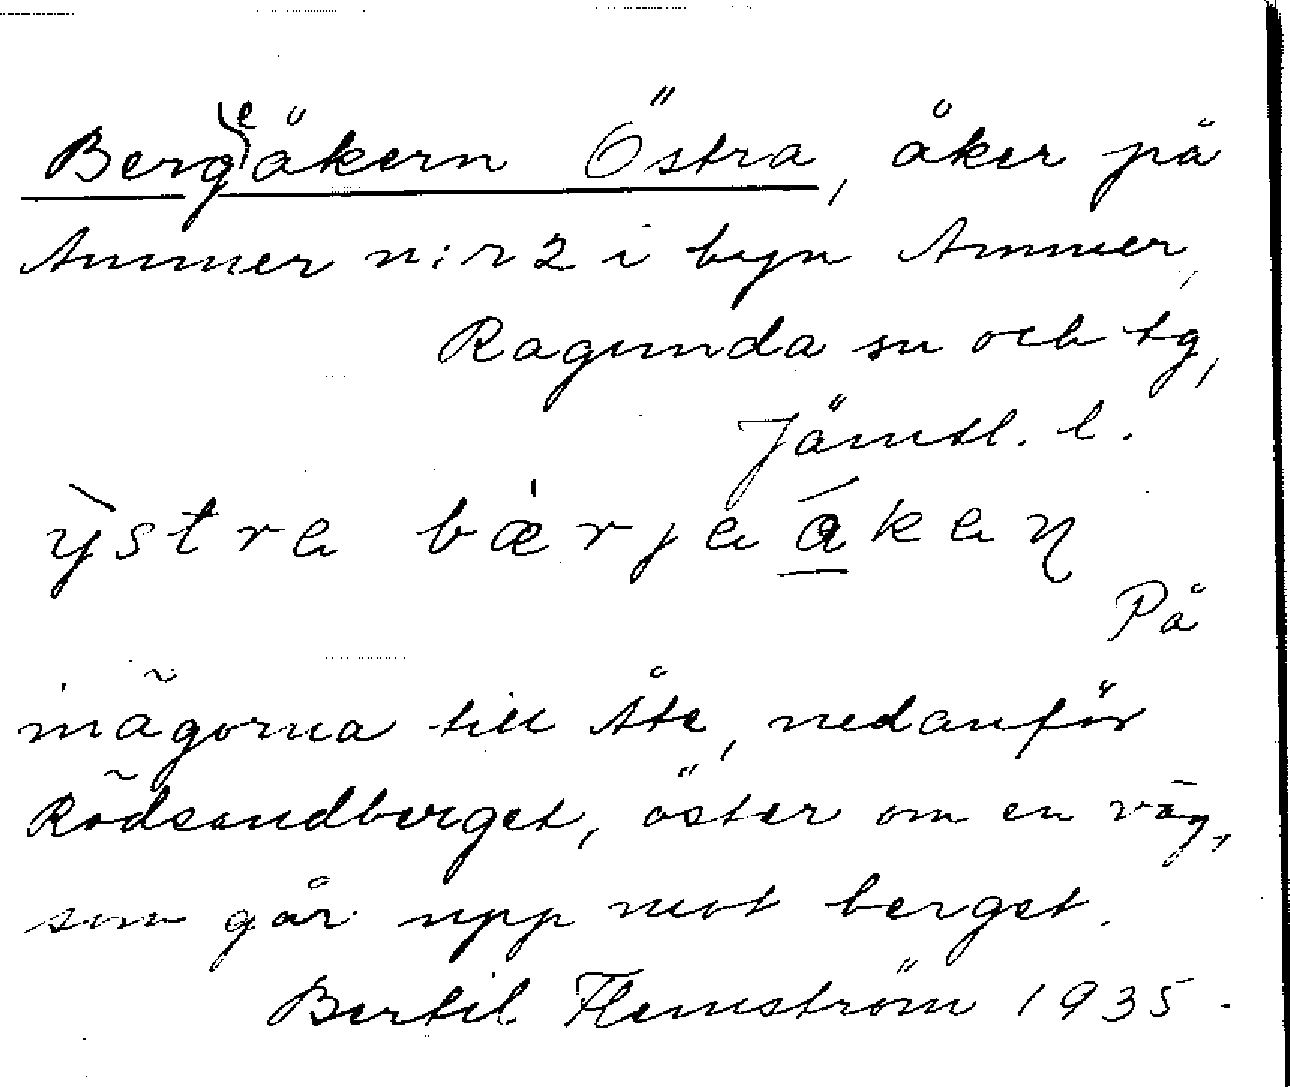 Bergeåkern Östra, åker på
Ammer n:r 2 i byn Ammer,
Ragunda sn och tg,
Jämtl. l.
ỳstra bærjaákaɳ
På
inägorna till Åte, nedanför
Rödsandberget, öster om en väg,
som går upp mot berget.
Bertil Flemström 1935.